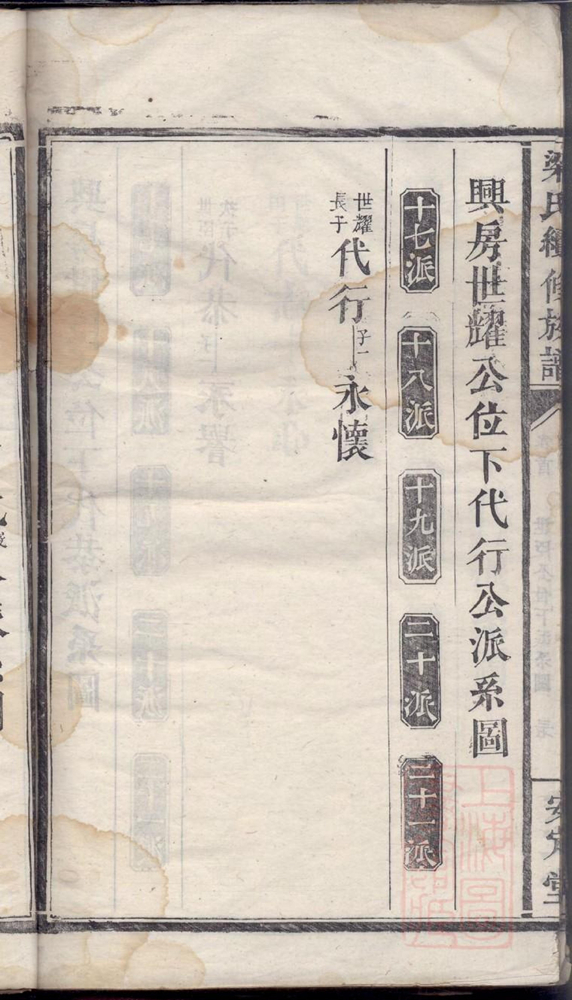 梁氏續修族譜
安定堂
興房世耀公位下代行公派系圖
十七派
十八派
十九派
二十派
二十一派
世耀
長子
代行
子一
永懷